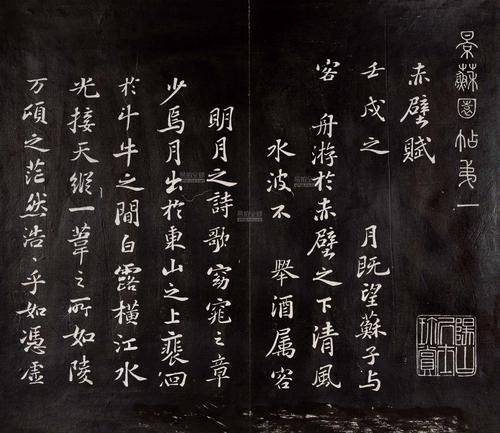 景蘇園帖弟一
赤壁賦
壬戌之 月既望蘇子与
客 舟游於赤壁之下清風
水波不 舉酒属客
明月之詩歌窈窕之章
少焉月出於東山之上裵洄
於斗牛之間白露橫江水
光接天縱一葦之所如陵
万頃之茫然浩〻乎如憑虛